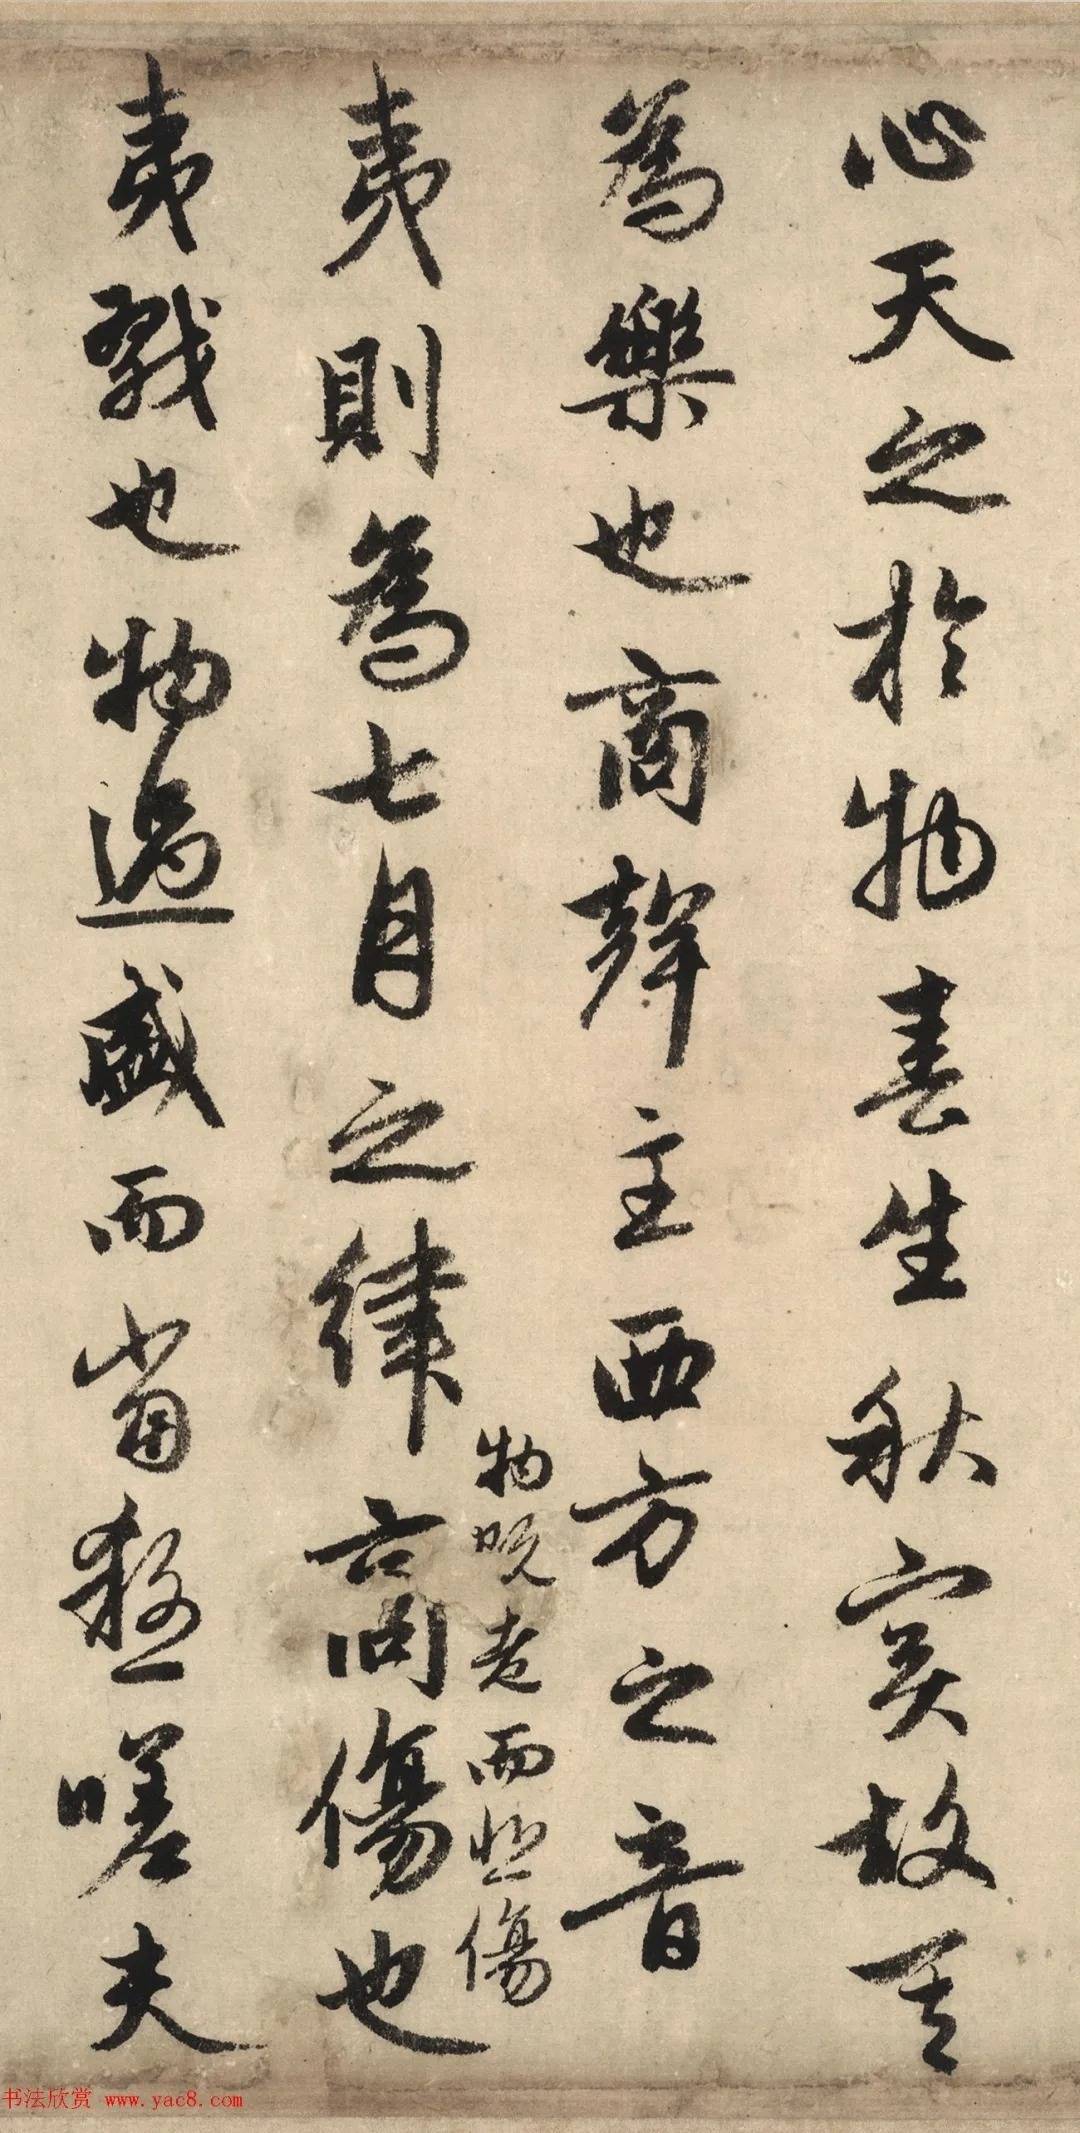 心天之於物春生秋實故其
為樂也商聲主西方之音
物既老而悲傷
夷則為七月之律商傷也
夷戮也物過盛而當殺嗟夫
书法欣赏 www.yac8.com